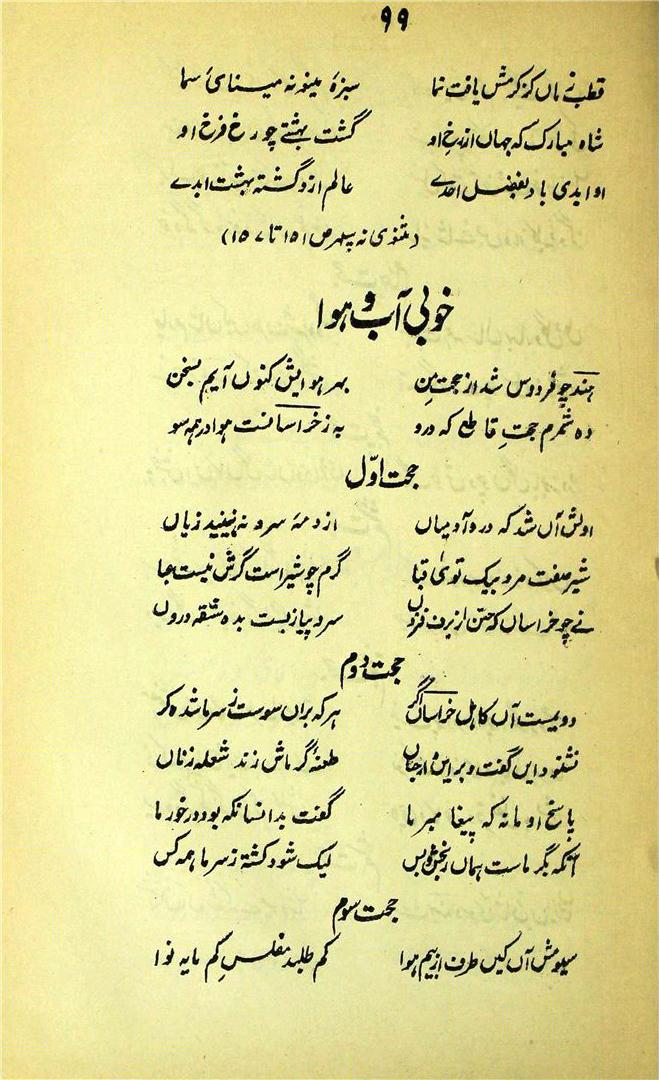 ۹۹
قطب نے ہاں کز کرمش یافت نما سبزۂ مینو نہ مینائ سما
شاہ مبارک کہ جہاں از رخ او گشت بہشتے چو رخ فرخ او
او ابدی باد بفضل احدے عالم ازو گشتہ بہشت ابدے
(مثنوی نہ سپہر ص ۱۵۱ تا ۱۵۷)
خوبی آب و ہوا
ہند چو فردوس شد از حجت من بہر ہوایش کنوں آیم بسخن
دہ شمرم حجتِ قاطع کہ درو بہ ز خراسانست ہوا در ہمہ سو
حجت اوّل
اولش آں شد کہ درو آدمیاں از دمۂ سرد نہ بینند زیاں
شیر صفت مرد بیک توی قبا گرم چو شیر است گرش نیست جا
نے چو خراساں کہ تن از برف فزوں سرد پیاز بست بدہ شقہ دروں
حجت دوم
دویست آں کاہل خراساں اگر ہر کہ براں سوست ز سرما شدہ کر
نشنود ایں گفت و برایں وار جاں طعنۂ گرماش زند شعلہ زناں
پاسخ او مانہ کہ پیغامبر ما گفت بدانسانکہ بود درخور ما
آنکہ بگرماست ہماں رنجش و بس لیک شود کشتہ ز سرما ہمہ کس
حجت سوم
سیومش آں کیں طرف از بیم ہوا کم طلبد مفلسِ کم مایہ نوا